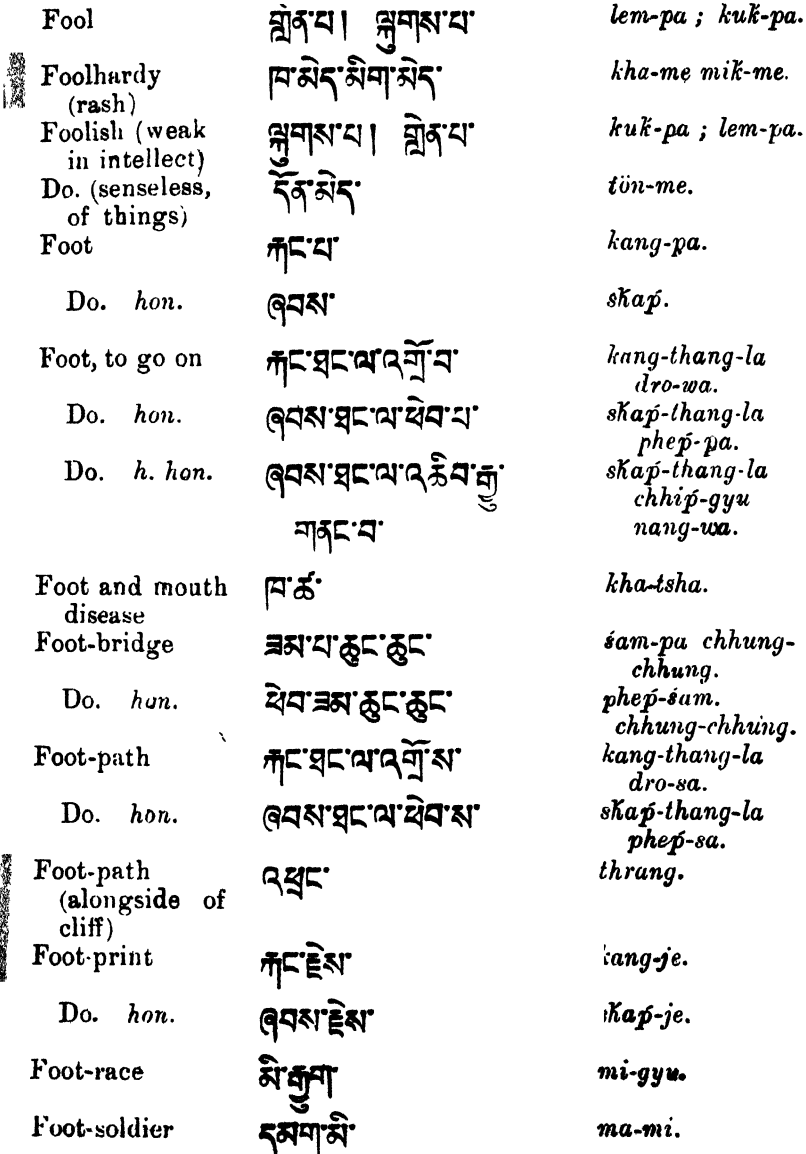 Fool གླེན་པ། ལྐུགས་པ་ lem-pa ; kuk̆-pa.
Foolhardy ཁ་མེད་མིག་མེད་ kha-me mik̆-me.
(rash)
Foolish (weak ལྐུགས་པ། གླེན་པ་ kuk̆-pa ; lem-pa.
in intellect)
Do. (senseless, དོན་མེད་ tön-me.
of things)
Foot རྐང་པ་ kang-pa.
Do. hon. ཞབས་ shap̆.
Foot, to go on རྐང་ཐང་ལ་འགྲོ་བ་ kang-thang-la
dro-wa.
Do. hon. ཞབས་ཐང་ལ་ཕེབ་པ་ shap̆-thang-la
phep̆-pa.
Do. h. hon. ཞབས་ཐང་ལ་འཆིབ་རྒྱུ་ shap̆-thang-la
chhip̆-gyu
གནང་བ་ nang-wa.
Foot and mouth ཁ་ཚ་ kha-tsha.
disease
Foot-bridge ཟམ་པ་ཆུང་ཆུང་ śam-pa chhung-
chhung.
Do. hon. ཕེབ་ཟམ་ཆུང་ཆུང་ phep̆-śam.
chhung-chhung.
Foot-path རྐང་ཐང་ལ་འགྲོ་ས་ kang-thang-la
dro-sa.
Do. hon. ཞབས་ཐང་ལ་ཕེབ་ས་ shap̆-thang-la
phep̆-sa.
Foot-path འཕྲང་ thrang.
(alongside of
cliff)
Foot-print རྐང་རྗེས་ kang-je.
Do. hon. ཞབས་རྗེས་ shap̆-je.
Foot-race མི་རྒྱུག་ mi-gyu.
Foot-soldier དམག་མི་ ma-mi.